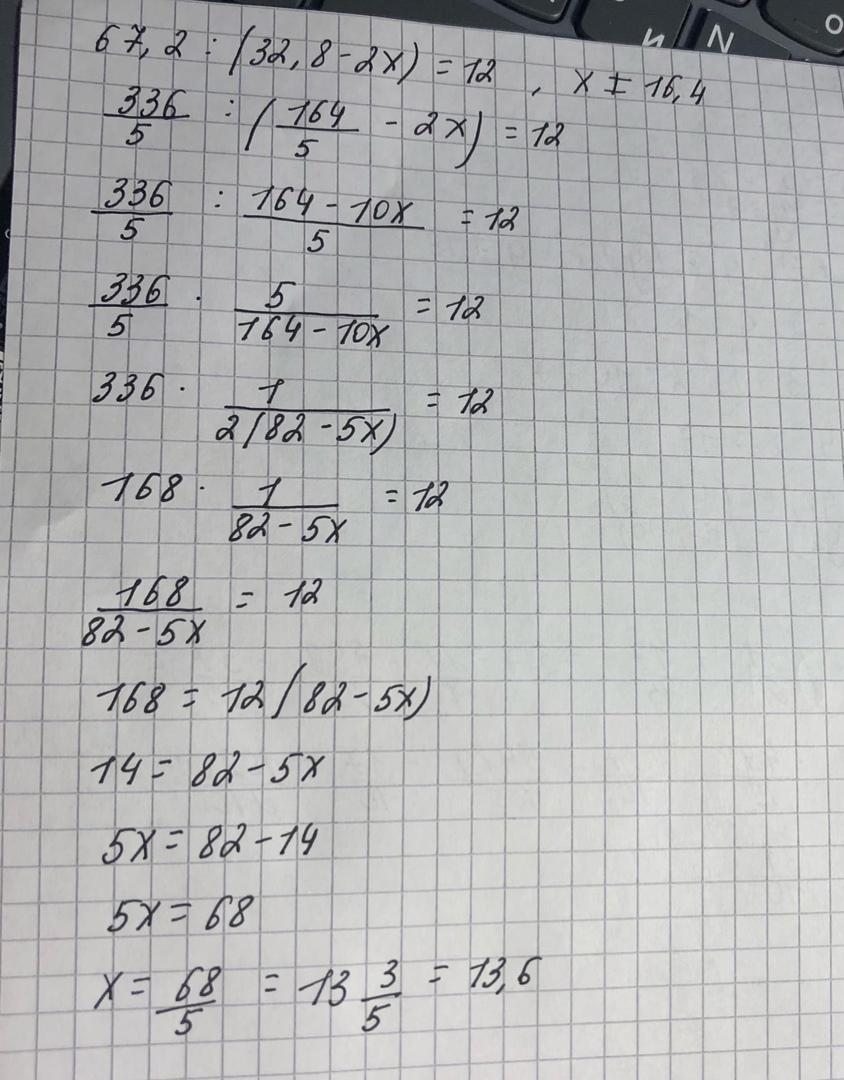 И N O
67,2 : (32,8 - 2x) = 12 , x ≠ 16,4
336/5 : (164/5 - 2x) = 12
336/5 : (164 - 10x)/5 = 12
336/5 · 5/(164 - 10x) = 12
336 · 1/(2(82 - 5x)) = 12
168 · 1/(82 - 5x) = 12
168/(82 - 5x) = 12
168 = 12(82 - 5x)
14 = 82 - 5x
5x = 82 - 14
5x = 68
x = 68/5 = 13 3/5 = 13,6